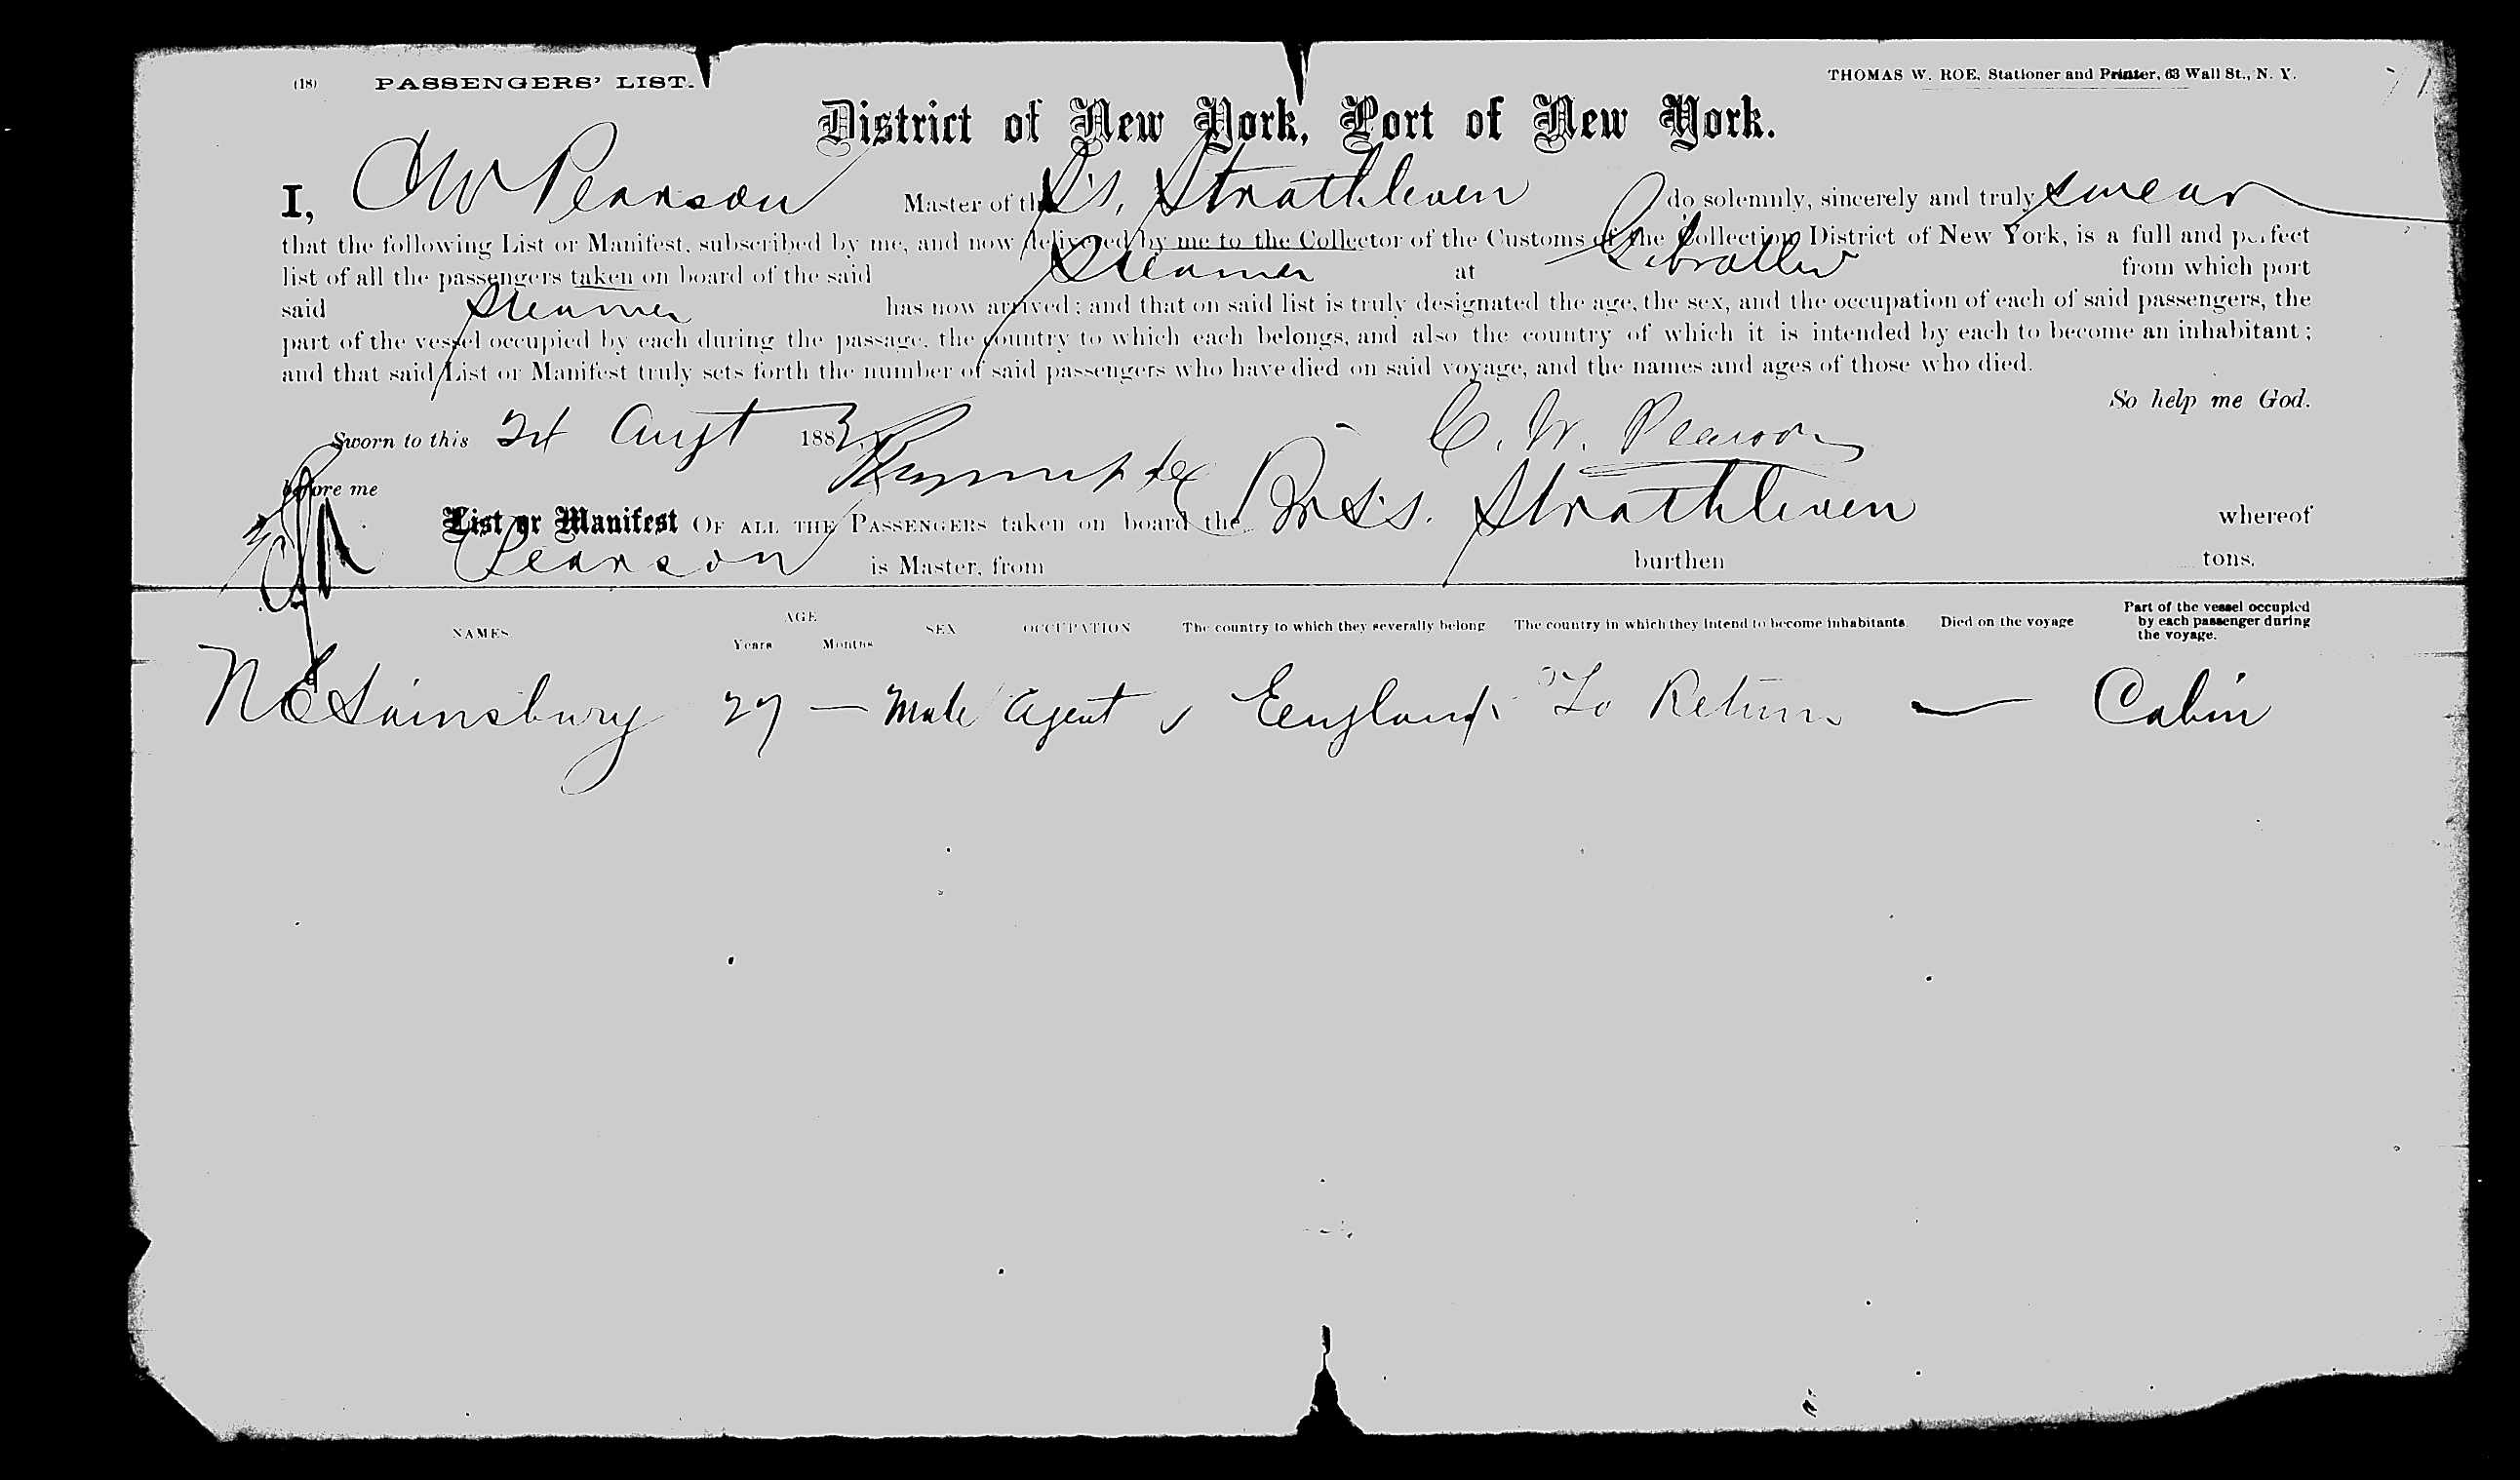 (18) PASSENGERS' LIST. THOMAS W. ROE, Stationer and Printer, 63 Wall St., N. Y. 71
District of New York, Port of New York.
I, C W Pearson Master of the S.S. Strathleven do solemnly, sincerely and truly swear
that the following List or Manifest, subscribed by me, and now delivered by me to the Collector of the Customs of the Collection District of New York, is a full and perfect
list of all the passengers taken on board of the said Steamer at Gibralter from which port
said Steamer has now arrived; and that on said list is truly designated the age, the sex, and the occupation of each of said passengers, the
part of the vessel occupied by each during the passage, the country to which each belongs, and also the country of which it is intended by each to become an inhabitant;
and that said List or Manifest truly sets forth the number of said passengers who have died on said voyage, and the names and ages of those who died.
So help me God.
Sworn to this 24 Augt 1883 C. W. Pearson
before me
List or Manifest OF ALL THE PASSENGERS taken on board the Br S.S. Strathleven whereof
Pearson is Master, from burthen tons.
NAMES AGE Years Months SEX OCCUPATION The country to which they severally belong The country in which they intend to become inhabitants Died on the voyage Part of the vessel occupied by each passenger during the voyage.
N E Sainsbury 27 — Male Agent England To Return — Cabin